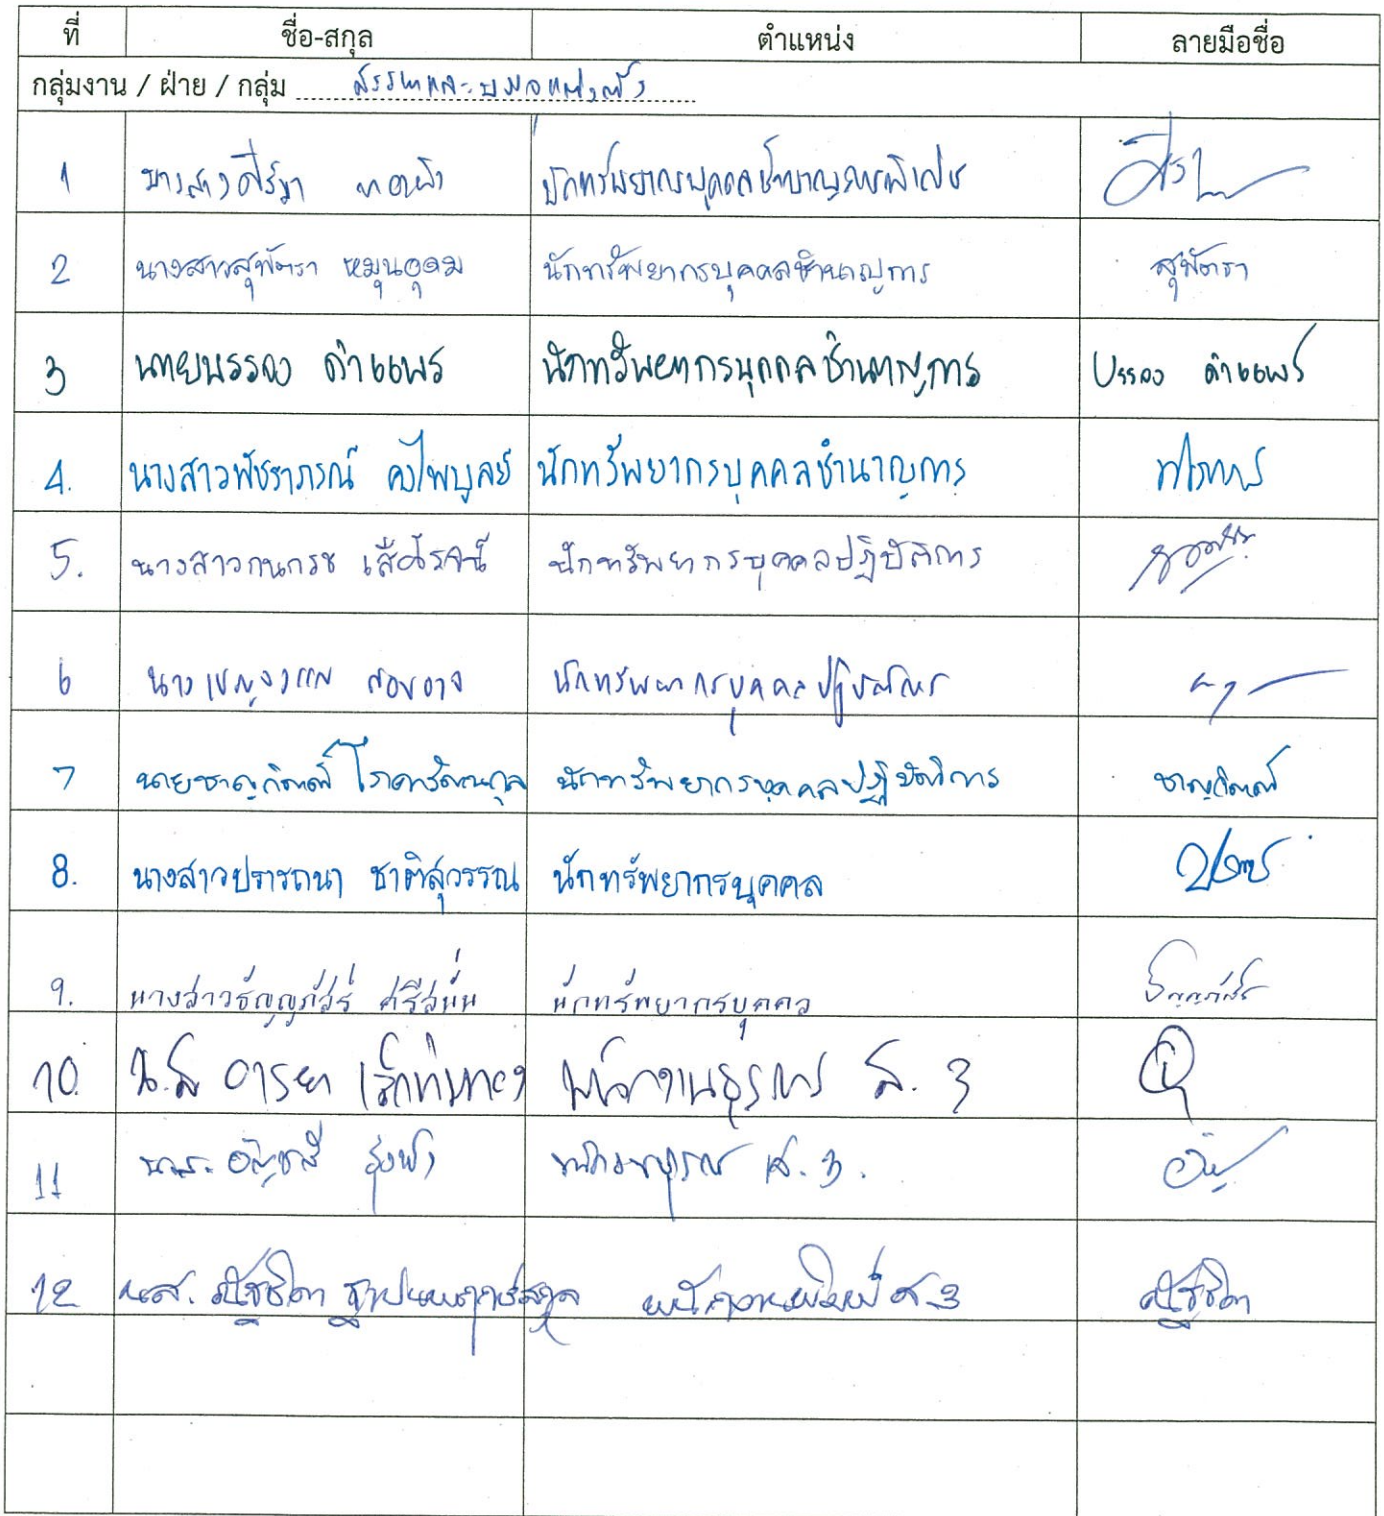 ที่ ชื่อ-สกุล ตำแหน่ง ลายมือชื่อ
กลุ่มงาน / ฝ่าย / กลุ่ม สรรหาและบรรจุแต่งตั้ง
1 นางสาวศิริมา นักทรัพยากรบุคคลชำนาญการพิเศษ
2 นางสาวสุพัตรา หมุนอุดม นักทรัพยากรบุคคลชำนาญการ สุพัตรา
3 นายบรรดง ดำแพร นักทรัพยากรบุคคลชำนาญการ บรรดง ดำแพร
4. นางสาวพัชราภรณ์ คงไพบูลย์ นักทรัพยากรบุคคลชำนาญการ
5. นางสาวกนกรช นักทรัพยากรบุคคลปฏิบัติการ
6 นาง นักทรัพยากรบุคคลปฏิบัติการ
7 นายชาญกิตติ์ นักทรัพยากรบุคคลปฏิบัติการ ชาญกิตติ์
8. นางสาวปรารถนา ชาติสุวรรณ นักทรัพยากรบุคคล
9. นางสาวธัญญภัสร์ ศรีสนั่น นักทรัพยากรบุคคล ธัญญภัสร์
10. น.ส อารยา พนักงานธุรการ ส. 3
11 น.ส. อัญชลี พนักงานธุรการ ส. 3.
12 นส. ณัฐชิตา พนักงานพิมพ์ ส.3 ณัฐชิตา